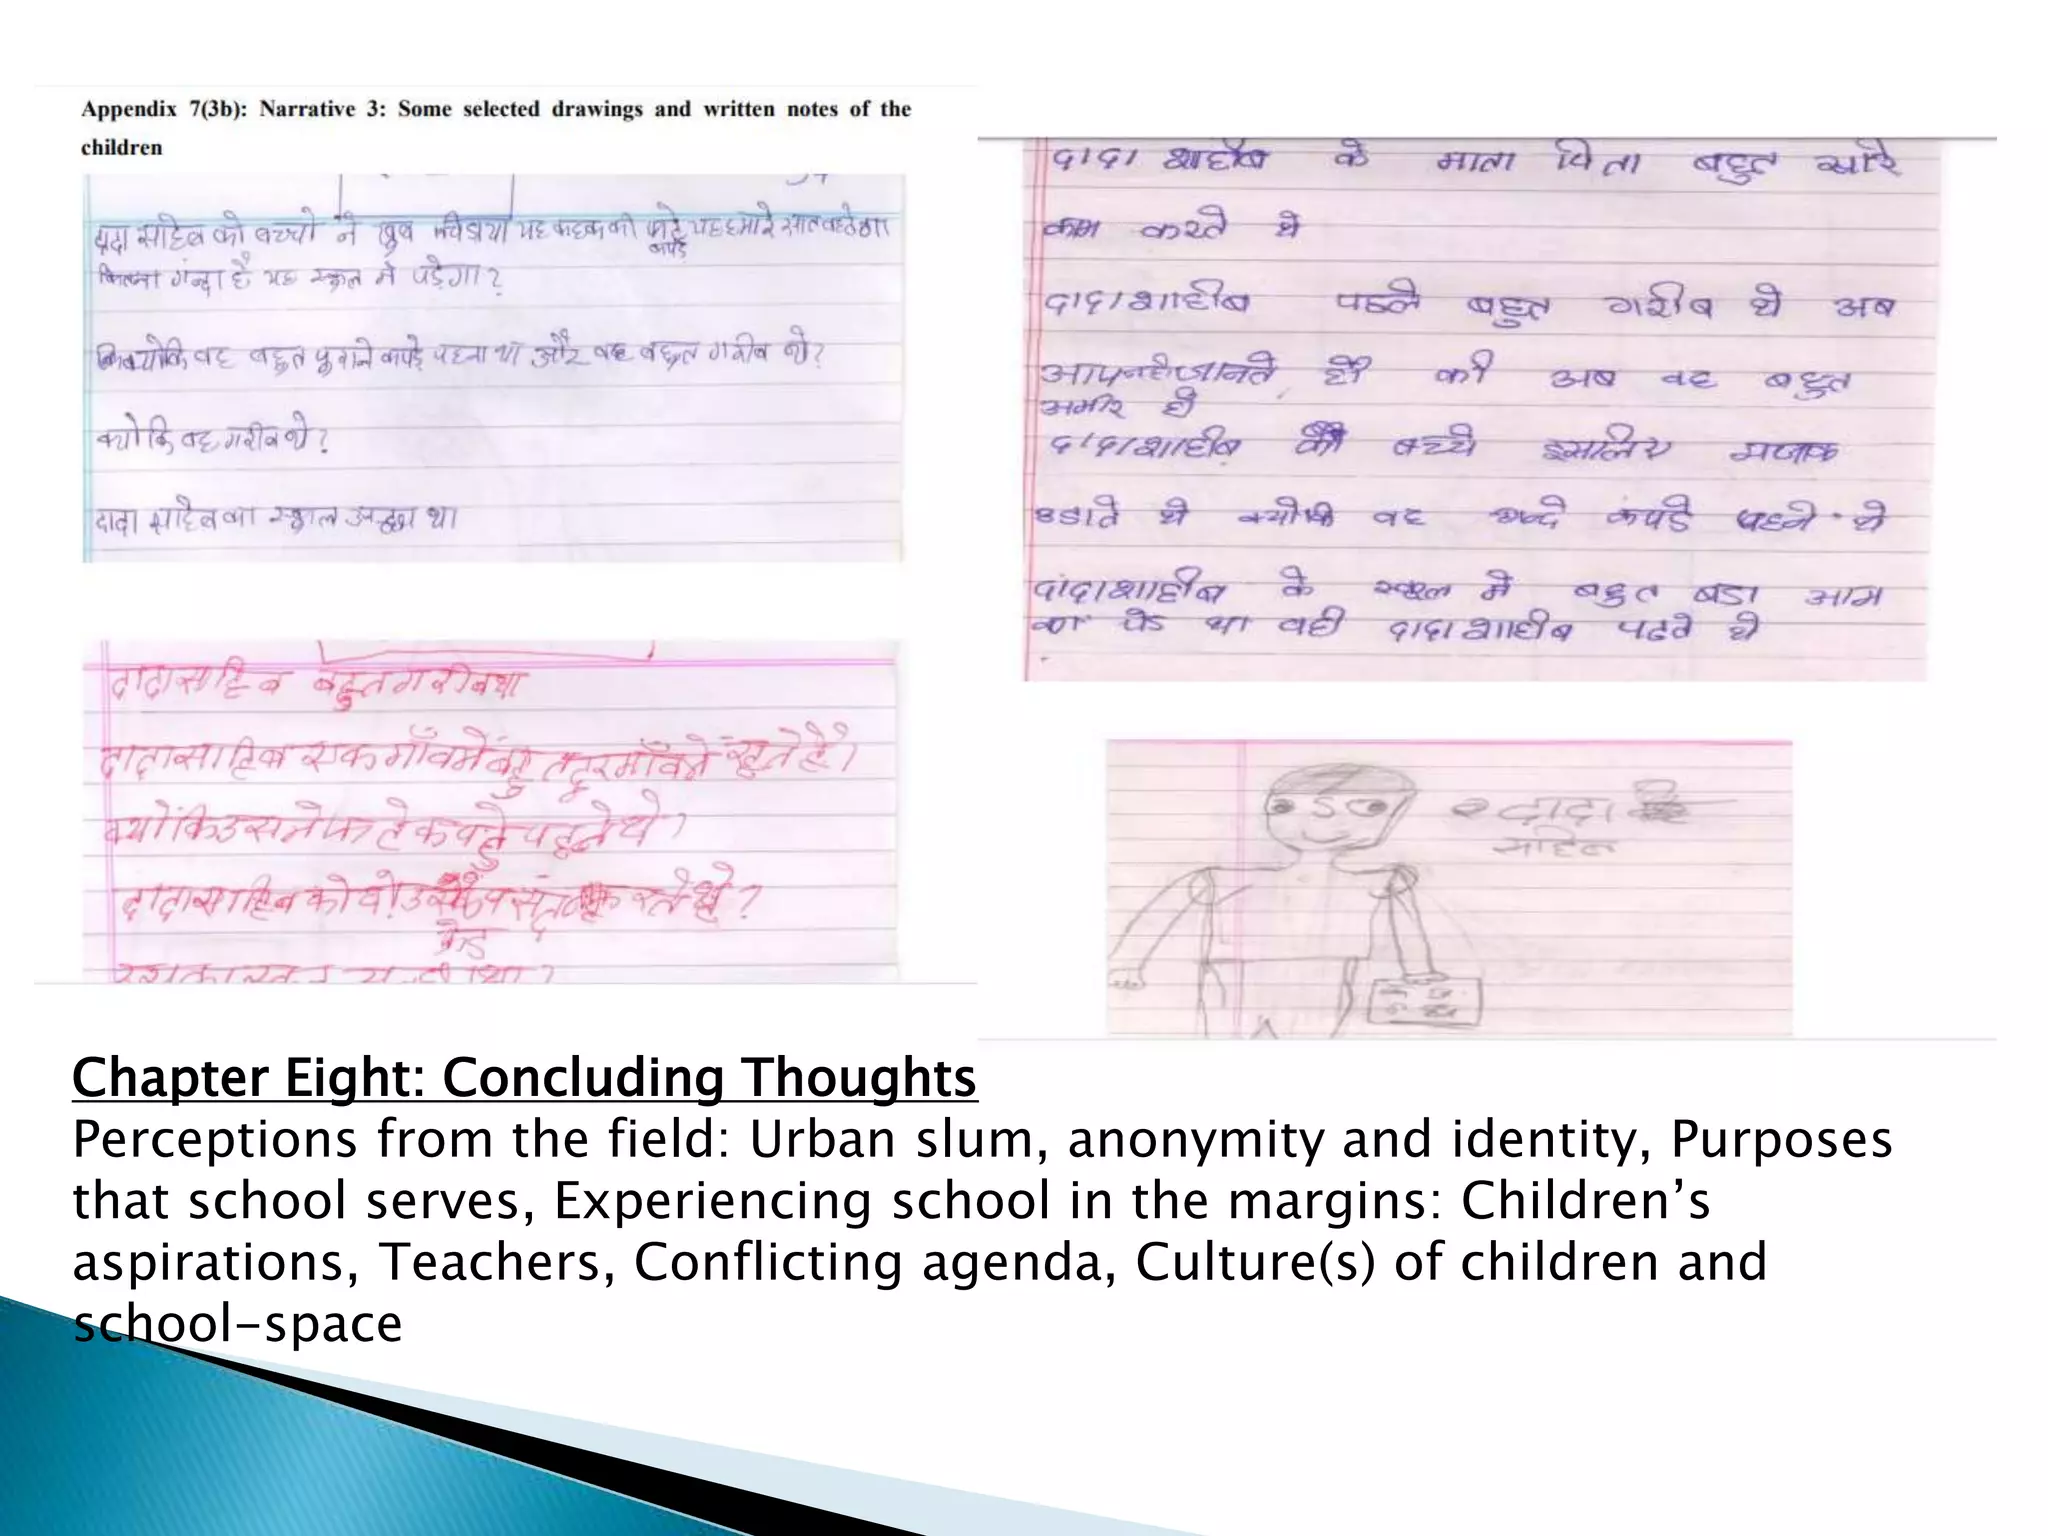 Appendix 7(3b): Narrative 3: Some selected drawings and written notes of the
children
दादा साहिब को बच्चो ने खुब चिडाया यह कहकर की फटे यह हमारे सात बठेगा
कपड़े
कितना गंन्दा है यह स्कूल मे पड़ेगा?
क्योकि वह बहुत पुराने कपड़े पहना था और वह बहुत गरीब थे?
क्योकि वह गरीब थे?
दादा साहिब का स्कूल अच्छा था
दादासाहिब बहुत गरीब था
दादासाहिब एक गाँव में बहुत दुर गाँव मे रहते है।
क्योंकि उसने फटे कपड़े पहने थे?
दादासाहिब को वो पसंद करते थे?
दादा शाहीब के माता पिता बहुत सारे
काम करते थे
दादाशाहीब पहले बहुत गरीब थे अब
आपनहेजानते है की अब वह बहुत
अमीर है
दादाशाहीब के बच्चे इसलिए मजाक
उडाते थे क्योकि वह गन्दे कपडे पहने थे
दादाशाहीब के स्कूल मे बहुत बडा आम
का पेड था वही दादाशाहीब पढते थे
दादा
साहिब
Chapter Eight: Concluding Thoughts
Perceptions from the field: Urban slum, anonymity and identity, Purposes
that school serves, Experiencing school in the margins: Children’s
aspirations, Teachers, Conflicting agenda, Culture(s) of children and
school-space